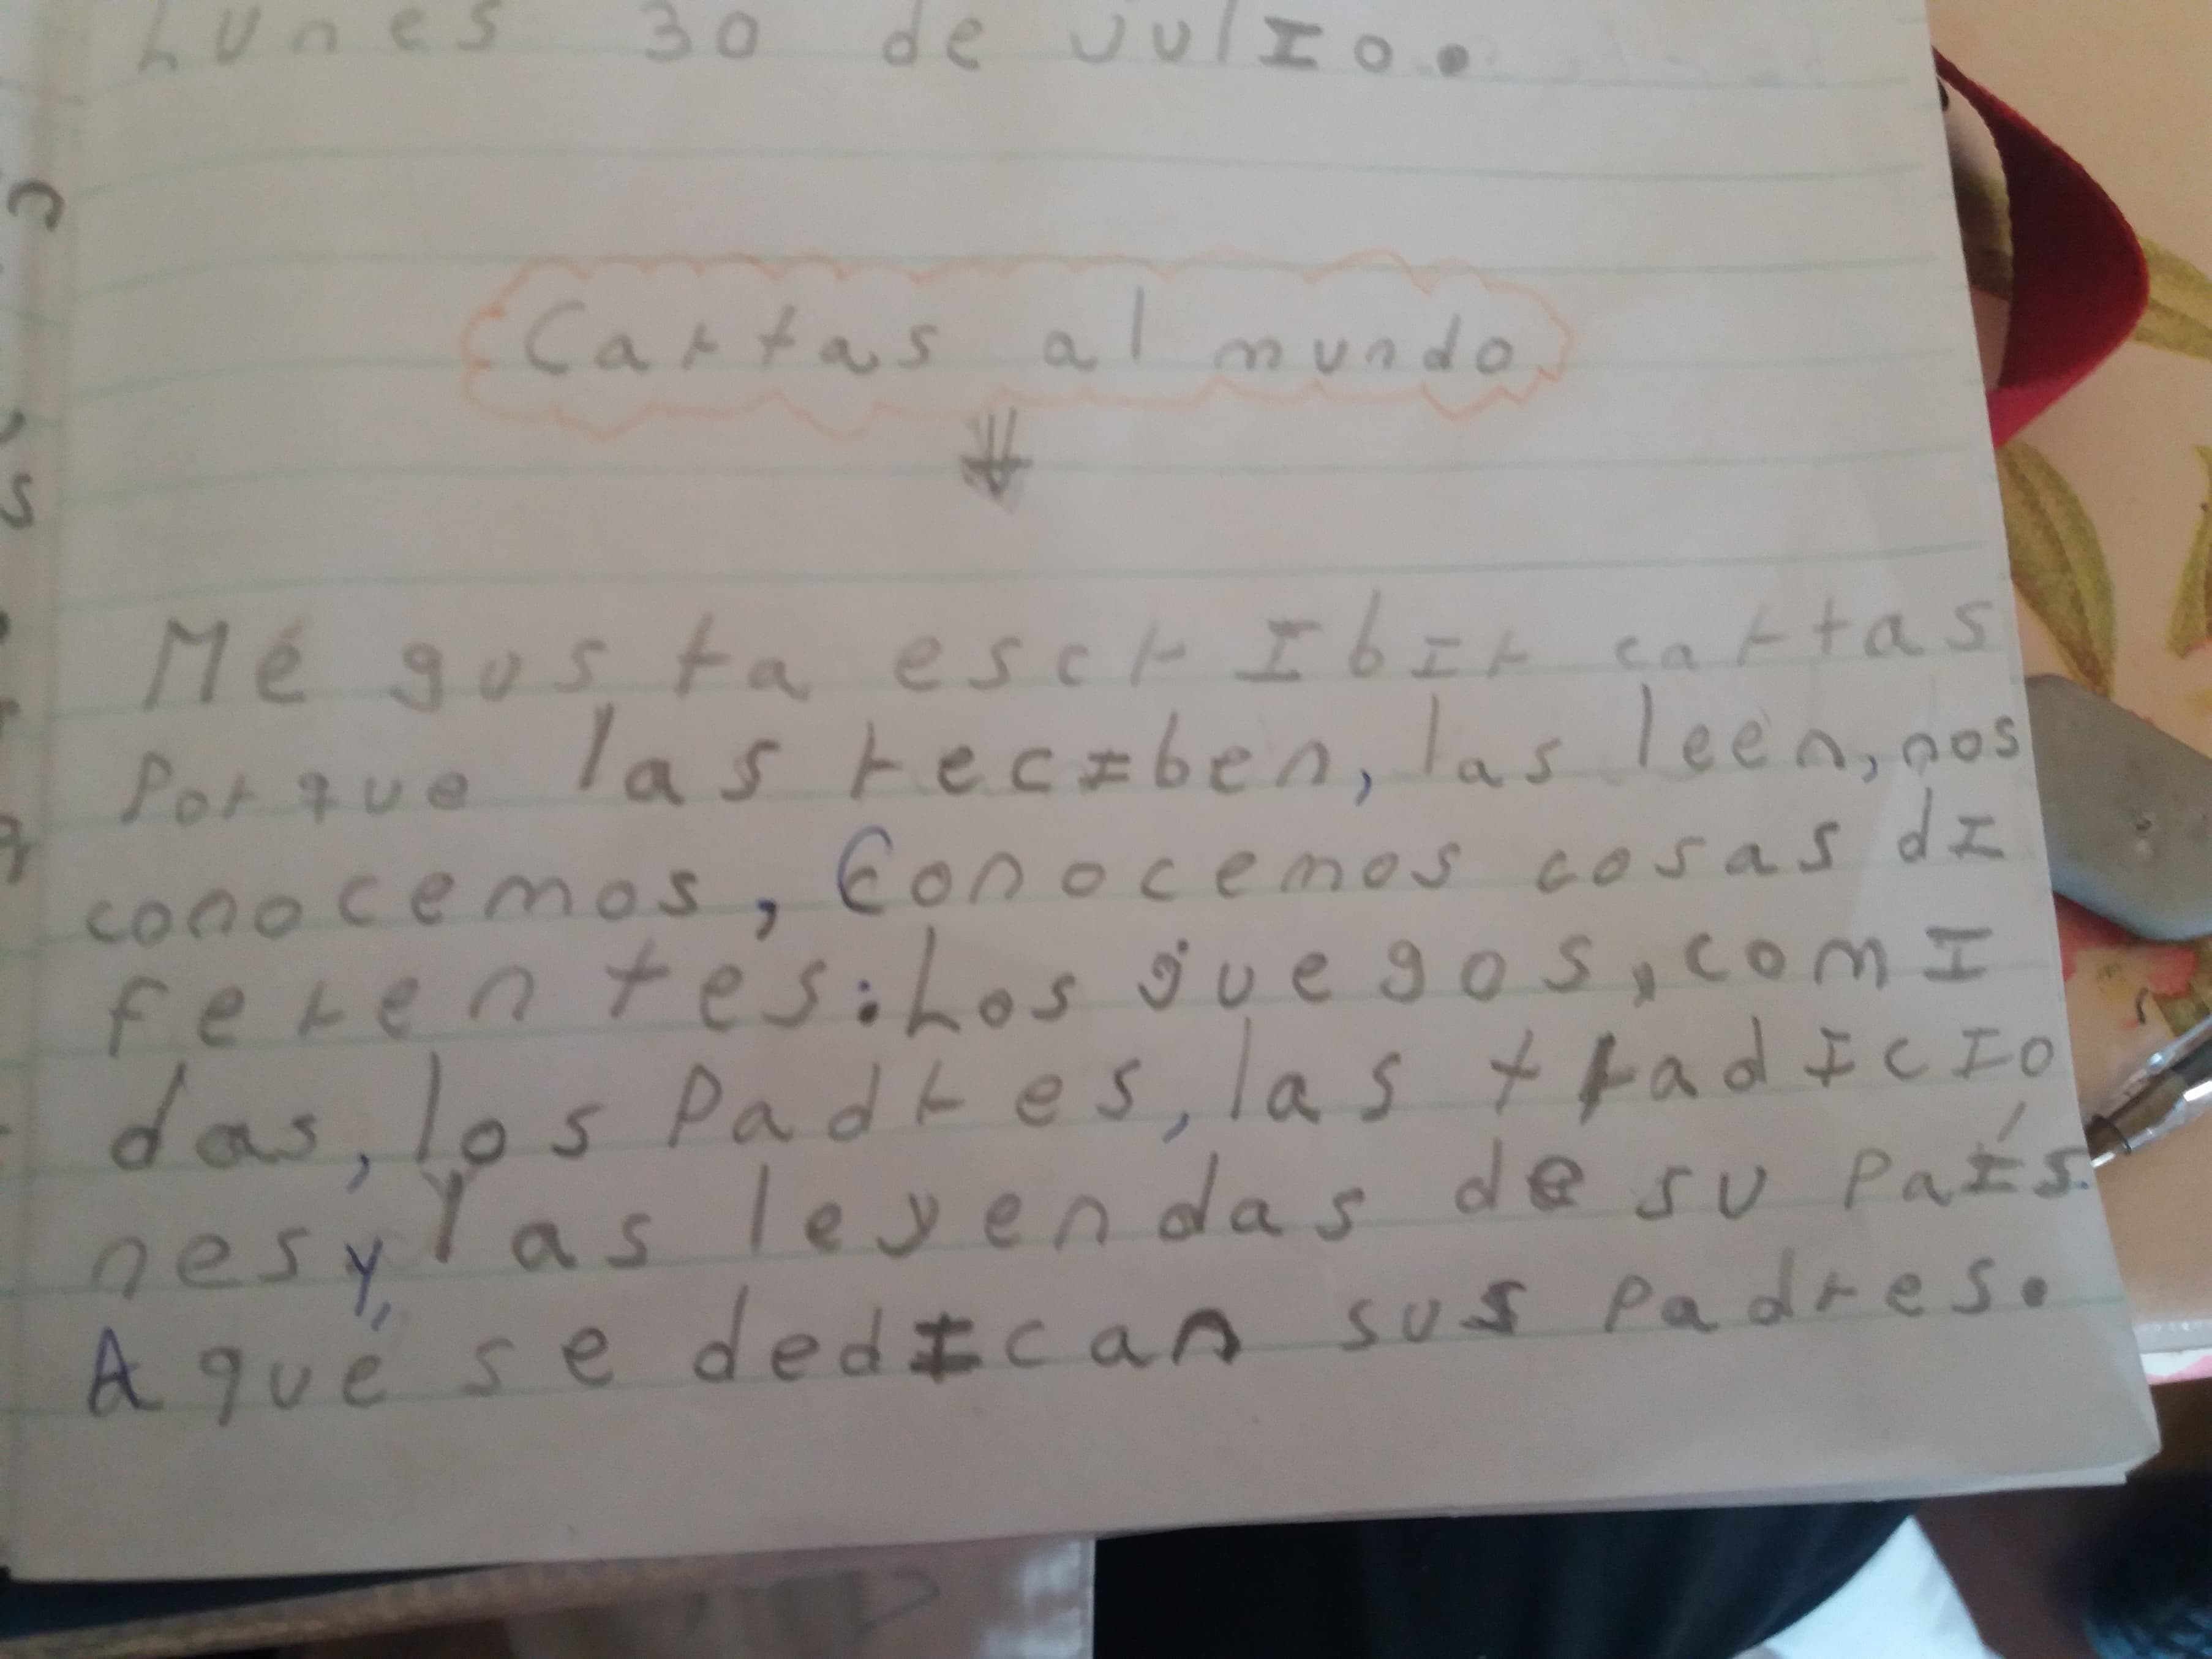 Lunes 30 de julIo.
Cartas al mundo
Me gusta escrIbIr cartas
Porque las recIben, las leen, nos
conocemos, Conocemos cosas dI
ferentes: Los juegos, comI
das, los Padres, las tradIcIo
nes y, las leyendas de su PaÍs.
A qué se dedIcan sus Padres.